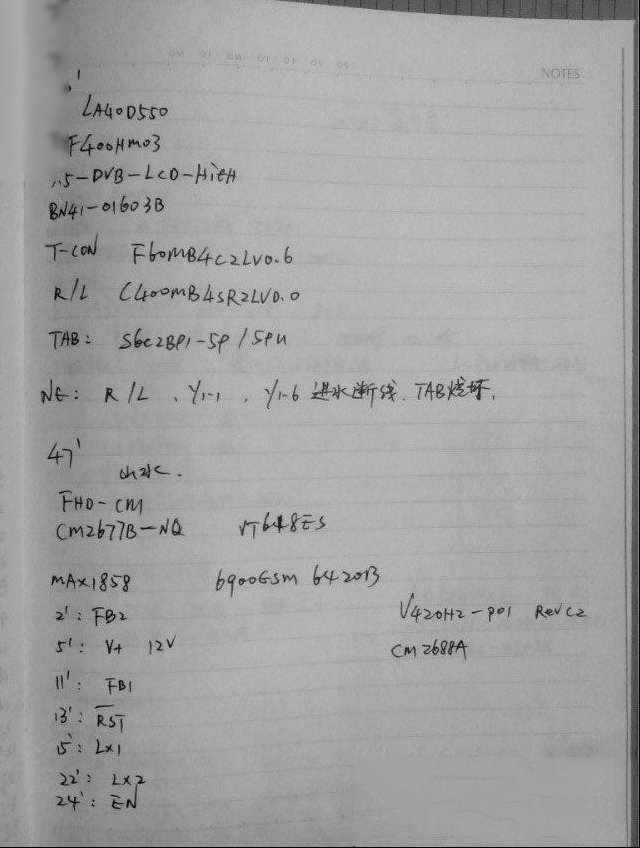 NOTES
LA40D550
F400HM03
5-DVB-LCD-HieH
BN41-01603B
T-CON F60MB4C2LV0.6
R/L C400MB4SR2LV0.0
TAB: S6C2BP1-5P/5PU
NE: R/L、Y1-1、Y1-6 进水断线、TAB烧坏,
47'
山水
FHD-CM
CM2677B-NQ VT648ES
MAX1858 6900GSM 6420B
2': FB2 V420H2-P01 Rev C2
5': V+ 12V CM2688A
11': FB1
13': RST
15': LX1
22': LX2
24': EN